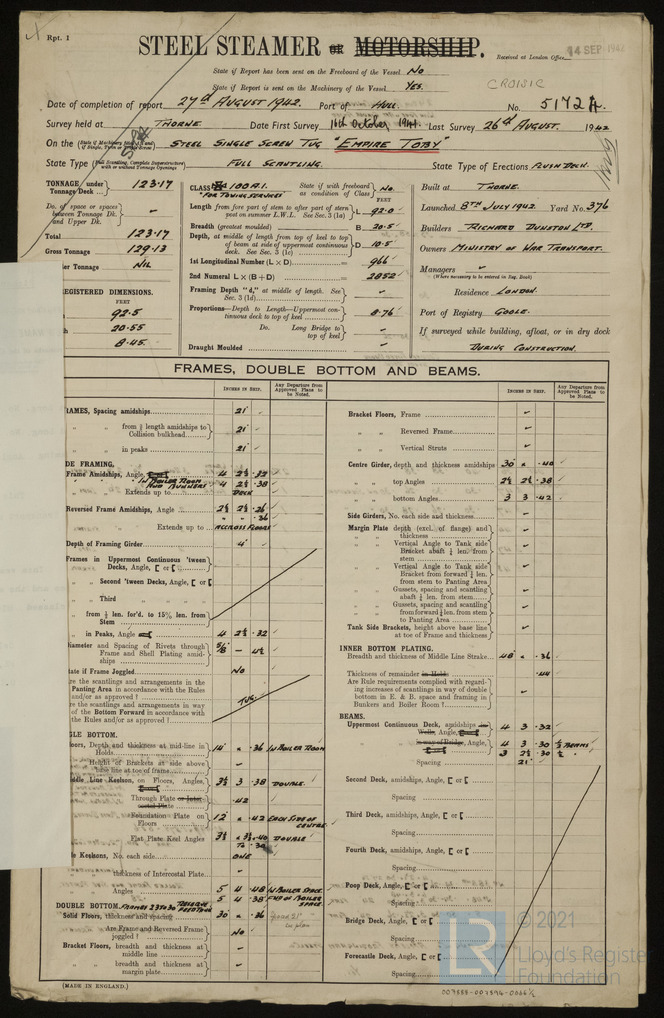 Rpt. 1
STEEL STEAMER OR MOTORSHIP.
Received at London Office
14 SEP 1942
State if Report has been sent on the Freeboard of the Vessel No
State if Report is sent on the Machinery of the Vessel Yes.
CROISIC
Date of completion of report 27th AUGUST 1942. Port of HULL. No. 51728.
Survey held at THORNE. Date First Survey 16th October 1941. Last Survey 26th AUGUST. 1942
On the STEEL SINGLE SCREW TUG "EMPIRE TOBY"
State Type FULL SCANTLING. State Type of Erections FLUSH DECK.
TONNAGE under Tonnage Deck 123.17
Do. of space or spaces between Tonnage Dk. and Upper Dk.
Total 123.17
Gross Tonnage 129.13
er Tonnage NIL
REGISTERED DIMENSIONS.
FEET
92.5
20.55
8.45
CLASS 100A.1. State if with freeboard as condition of Class No.
"FOR TOWING SERVICES"
FEET
Length from fore part of stem to after part of stern post on summer L.W.L. See Sec. 3 (1a) L 92.0
Breadth (greatest moulded) B 20.5
Depth, at middle of length from top of keel to top of beam at side of uppermost continuous deck. See Sec. 3 (1c) D 10.5
1st Longitudinal Number (L × D) = 966
2nd Numeral L × (B + D) = 2852
Framing Depth "d," at middle of length. See Sec. 3 (1d)
Proportions—Depth to Length—Uppermost continuous deck to top of keel 8.76
Do. Long Bridge to top of keel
Draught Moulded
Built at THORNE.
Launched 8TH JULY 1942 Yard No. 376
Builders RICHARD DUNSTON LTD.
Owners MINISTRY OF WAR TRANSPORT.
Managers
(Where necessary to be entered in Reg. Book)
Residence LONDON.
Port of Registry GOOLE.
If surveyed while building, afloat, or in dry dock
DURING CONSTRUCTION.
FRAMES, DOUBLE BOTTOM AND BEAMS.
INCHES IN SHIP.
Any Departure from Approved Plans to be Noted.
RAMES, Spacing amidships 21
" " from ⅗ length amidships to Collision bulkhead 21
" " in peaks 21
DE FRAMING.
Frame Amidships, Angle 4 2½ .32
IN BOILER ROOM AND BUNKERS 4 2½ .38
Extends up to DECK
Reversed Frame Amidships, Angle 2½ 2½ .26
" " .36
Extends up to ACCROSS FLOORS
Depth of Framing Girder 4"
Frames in Uppermost Continuous 'tween Decks, Angle, [ or [
" " Second 'tween Decks, Angle, [ or [
" " Third " "
" " from ⅗ len. for'd. to 15% len. from Stem
" " in Peaks, Angle 4 2½ .32
Diameter and Spacing of Rivets through Frame and Shell Plating amidships 5/8 — 4½
State if Frame Joggled No
re the scantlings and arrangements in the Panting Area in accordance with the Rules and/or approved?
re the scantlings and arrangements in way of the Bottom Forward in accordance with the Rules and/or approved?
TUG.
GLE BOTTOM.
oors, Depth and thickness at mid-line in Holds 14 × .36 IN BOILER ROOM
Height of Brackets at side above base line at toe of frame
iddle Line Keelson, on Floors, Angles, 3½ 3 .38 DOUBLE.
" " Through Plate .42
" " Foundation Plate on Floors 12 × .42 EACH SIDE OF CENTRE
" " Flat Plate Keel Angles 3½ × 3½ .40 DOUBLE
de Keelsons, No. each side ONE
" " thickness of Intercostal Plate
" " Angles 5 4 .48 IN BOILER SPACE
5 4 .38 FWD OF BOILER SPACE
DOUBLE BOTTOM. FRAMES 23 TO 30 RESERVE FEED TANK
Solid Floors, thickness and spacing 30 × .36
Are Frame and Reversed Frame joggled? No
Bracket Floors, breadth and thickness at middle line
" " breadth and thickness at margin plate
Bracket Floors, Frame
" " Reversed Frame
" " Vertical Struts
Centre Girder, depth and thickness amidships 30 × .40
" " top Angles 2½ 2½ .38
" " bottom Angles 3 3 .42
Side Girders, No. each side and thickness
Margin Plate depth (excl. of flange) and thickness
" " Vertical Angle to Tank side Bracket abaft ¼ len. from stem
" " Vertical Angle to Tank side Bracket from forward ¼ len. from stem to Panting Area
" " Gussets, spacing and scantling abaft ¼ len. from stem
" " Gussets, spacing and scantling from forward ¼ len. from stem to Panting Area
Tank Side Brackets, height above base line at toe of Frame and thickness
INNER BOTTOM PLATING.
Breadth and thickness of Middle Line Strake 48 × .36
Thickness of remainder in Holds .44
Are Rule requirements complied with regarding increases of scantling in way of double bottom in E. & B. space and framing in Bunkers and Boiler Room?
BEAMS.
Uppermost Continuous Deck, amidships 4 3 .32
4 3 .30 ½ BEAMS
3 2½ .30 ½ "
Spacing 21"
Second Deck, amidships, Angle, [ or [
Spacing
Third Deck, amidships, Angle, [ or [
Spacing
Fourth Deck, amidships, Angle, [ or [
Spacing
Poop Deck, Angle, [ or [
Spacing
Bridge Deck, Angle, [ or [
Spacing
Forecastle Deck, Angle, [ or [
Spacing
(MADE IN ENGLAND.)
© 2021
LR
Lloyd's Register
Foundation
007888-007896-0066½